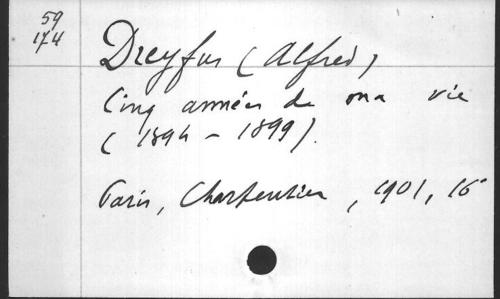 59
174
Dreyfus (Alfred)
Cinq années de ma vie
(1894 - 1899).
Paris, Charpentier, 1901, 16°